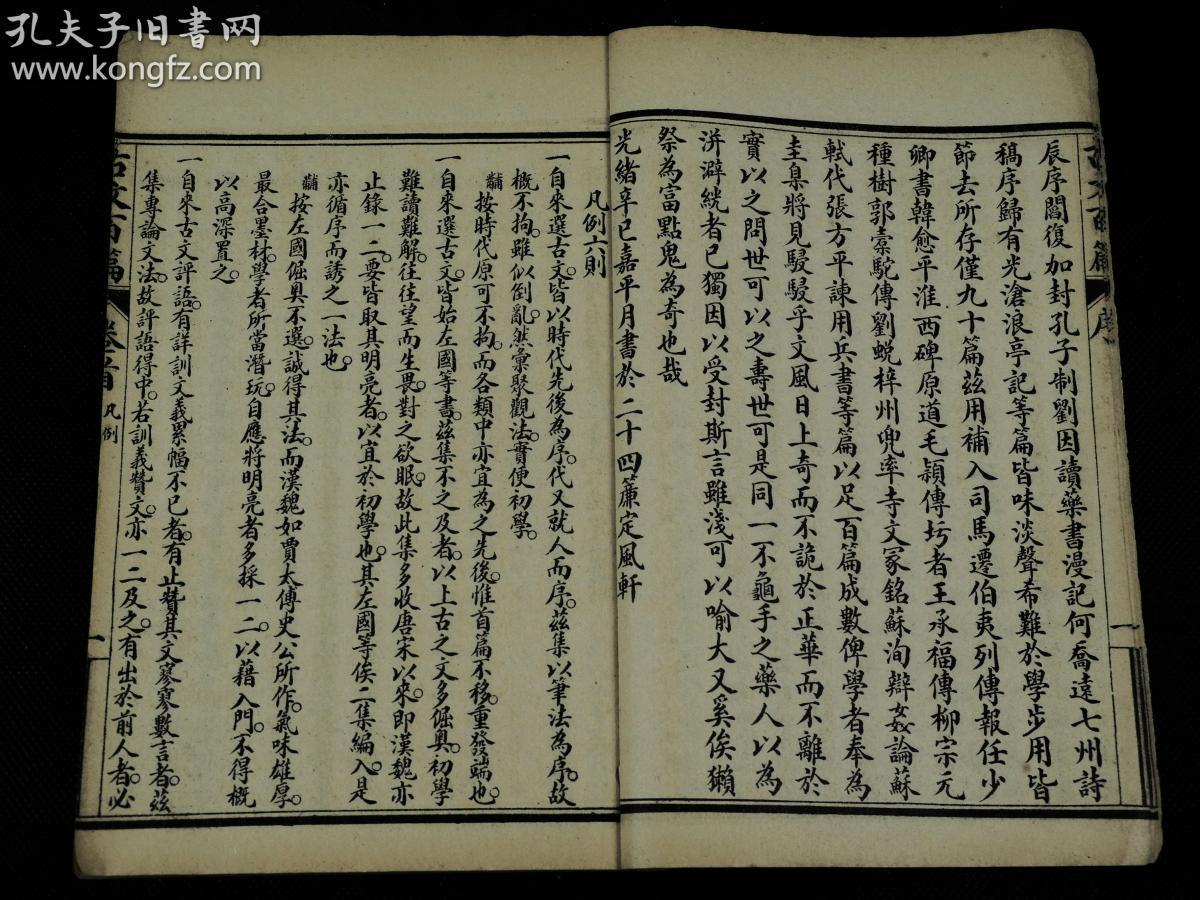 孔夫子旧書网
www.kongfz.com
辰序閻復加封孔子制劉因讀藥書漫記何喬遠七州詩
稿序歸有光滄浪亭記等篇皆味淡聲希難於學步用皆
節去所存僅九十篇茲用補入司馬遷伯夷列傳報任少
卿書韓愈平淮西碑原道毛穎傳圬者王承福傳柳宗元
種樹郭橐駝傳劉蛻梓州兜率寺文冢銘蘇洵辯姦論蘇
軾代張方平諫用兵書等篇以足百篇成數俾學者奉為
圭臬將見駸駸乎文風日上奇而不詭於正華而不離於
實以之問世可以之壽世可是同一不龜手之藥人以為
洴澼絖者已獨因以受封斯言雖淺可以喻大又奚俟獺
祭為富點鬼為奇也哉
光緒辛巳嘉平月書於二十四簾定風軒
凡例六則
一自來選古文皆以時代先後為序代又就人而序茲集以筆法為序故
概不拘雖似倒亂然彙聚觀法實便初學
黼按時代原可不拘而各類中亦宜為之先後惟首篇不移重發端也
一自來選古文皆始左國等書茲集不之及者以上古之文多倔奧初學
難讀難解往往望而生畏對之欲眠故此集多收唐宋以來即漢魏亦
止錄一二要皆取其明亮者以宜於初學也其左國等俟二集編入是
亦循序而誘之一法也
黼按左國倔奧不選誠得其法而漢魏如賈太傅史公所作氣味雄厚
最合墨材學者所當潛玩自應將明亮者多採一二以藉入門不得概
以高深置之
一自來古文評語有詳訓文義累幅不已者有止贊其文寥寥數言者茲
集專論文法故評語得中若訓義贊文亦一二及之有出於前人者必
古文百篇 卷首 凡例 一